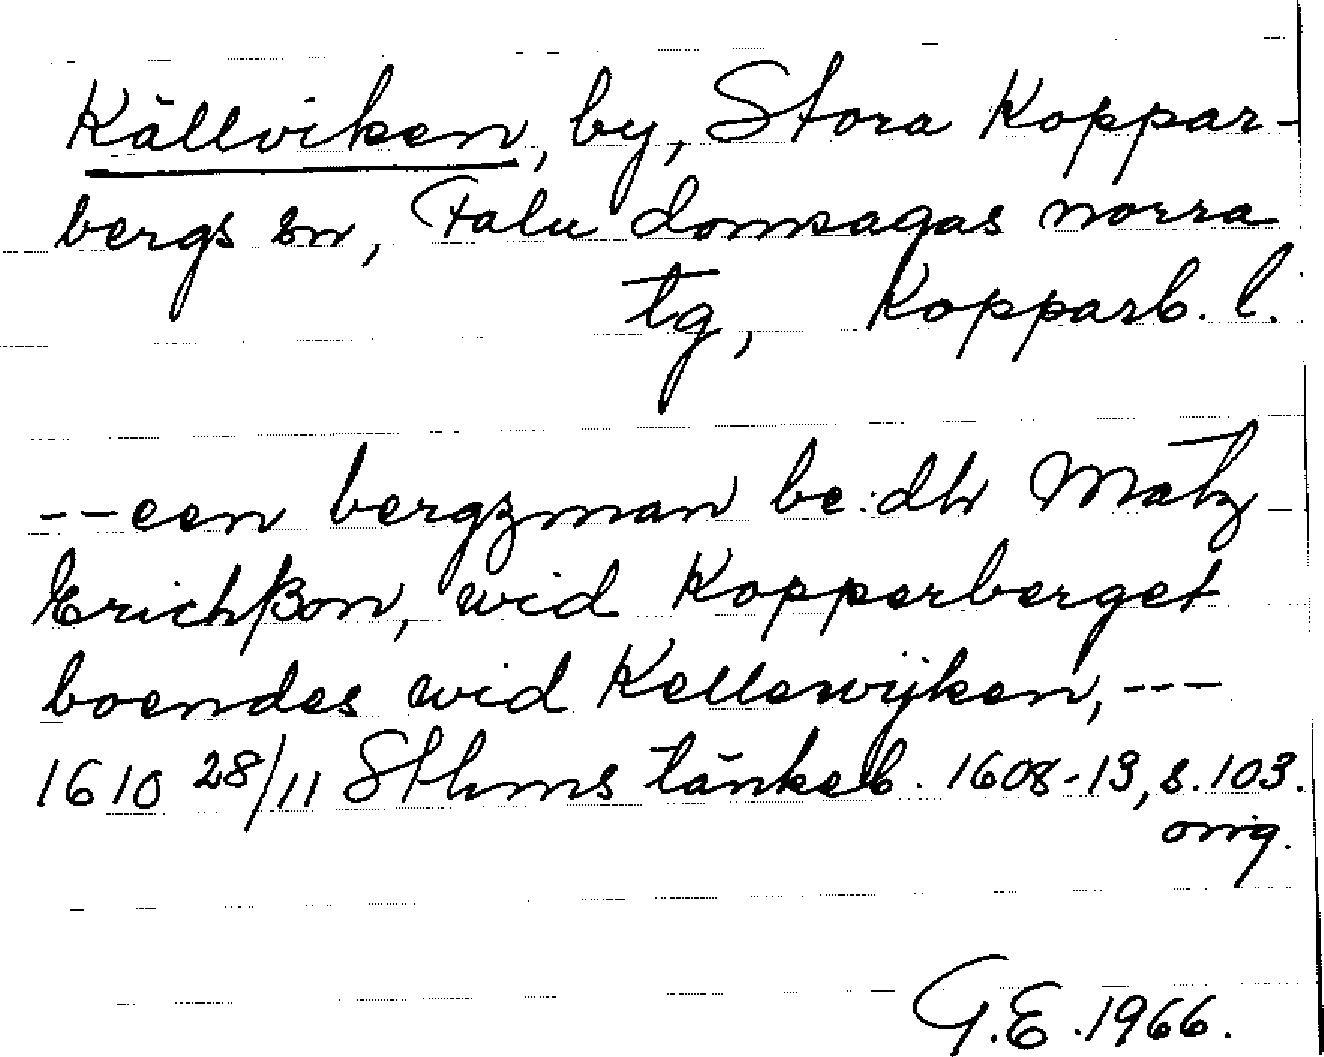 Källviken, by, Stora Koppar-
bergs sn, Falu domsagas norra
tg, Kopparb. l.
--een bergzman be:dh Matz
Erichßon, wid Kopperberget
boendes wid Kellewijken,---
1610 28/11 Sthms tänkeb. 1608-13, s. 103.
orig.
G.E. 1966.